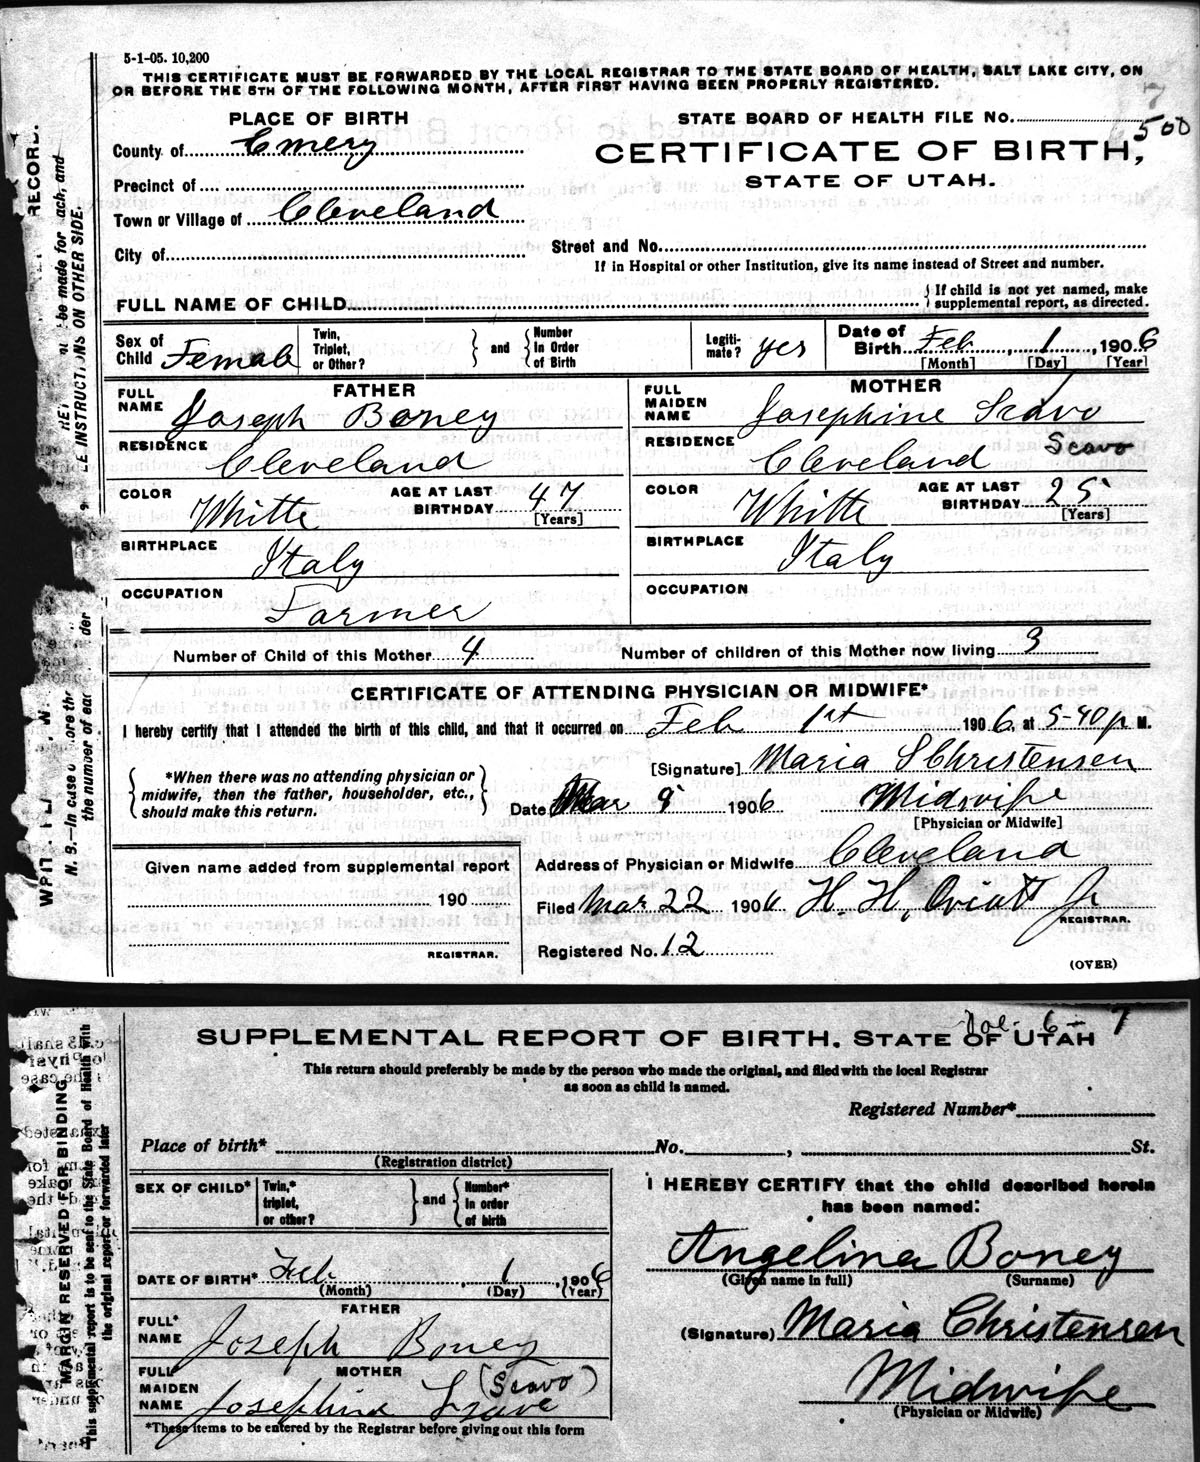 5-1-05. 10,200
THIS CERTIFICATE MUST BE FORWARDED BY THE LOCAL REGISTRAR TO THE STATE BOARD OF HEALTH, SALT LAKE CITY, ON
OR BEFORE THE 5TH OF THE FOLLOWING MONTH, AFTER FIRST HAVING BEEN PROPERLY REGISTERED.
7
PLACE OF BIRTH
STATE BOARD OF HEALTH FILE NO. 500
County of Emery
CERTIFICATE OF BIRTH,
STATE OF UTAH.
Precinct of
Town or Village of Cleveland
Street and No.
City of
If in Hospital or other Institution, give its name instead of Street and number.
FULL NAME OF CHILD
{ If child is not yet named, make
supplemental report, as directed.
Sex of Child Female
Twin, Triplet, or Other? } and { Number In Order of Birth
Legitimate? yes
Date of Birth Feb, 1, 1906
[Month] [Day] [Year]
FATHER
FULL NAME Joseph Boney
RESIDENCE Cleveland
COLOR Whitte
AGE AT LAST BIRTHDAY 47
[Years]
BIRTHPLACE Italy
OCCUPATION Farmer
MOTHER
FULL MAIDEN NAME Josephine Scavo
Scavo
RESIDENCE Cleveland
COLOR Whitte
AGE AT LAST BIRTHDAY 25
[Years]
BIRTHPLACE Italy
OCCUPATION
Number of Child of this Mother 4
Number of children of this Mother now living 3
CERTIFICATE OF ATTENDING PHYSICIAN OR MIDWIFE*
I hereby certify that I attended the birth of this child, and that it occurred on Feb 1st 1906, at 5-40 p M.
{ *When there was no attending physician or
midwife, then the father, householder, etc.,
should make this return. }
[Signature] Maria S Christensen
Date Mar 9 1906 Midwife
[Physician or Midwife]
Given name added from supplemental report
190
REGISTRAR.
Address of Physician or Midwife Cleveland
Filed Mar 22 1906 H H, Oviatt Jr
REGISTRAR.
Registered No. 12
(OVER)
RECORD.
be made for ach, and
E INSTRUCTIONS ON OTHER SIDE.
N. B.—In case
the number of
SUPPLEMENTAL REPORT OF BIRTH. STATE OF UTAH
6-7
This return should preferably be made by the person who made the original, and filed with the local Registrar
as soon as child is named.
Registered Number*
Place of birth* No. , St.
(Registration district)
SEX OF CHILD*
Twin,* triplet, or other? } and { Number* In order of birth
DATE OF BIRTH* Feb, 1, 1906
(Month) (Day) (Year)
FATHER
FULL* NAME Joseph Boney
MOTHER
FULL MAIDEN NAME Josephine (Scavo)
*These items to be entered by the Registrar before giving out this form
I HEREBY CERTIFY that the child described herein
has been named:
Angelina Boney
(Given name in full) (Surname)
(Signature) Maria Christensen
Midwife
(Physician or Midwife)
MARGIN RESERVED FOR BINDING
This supplemental report is to be sent to the State Board of Health with
the original report or forwarded later